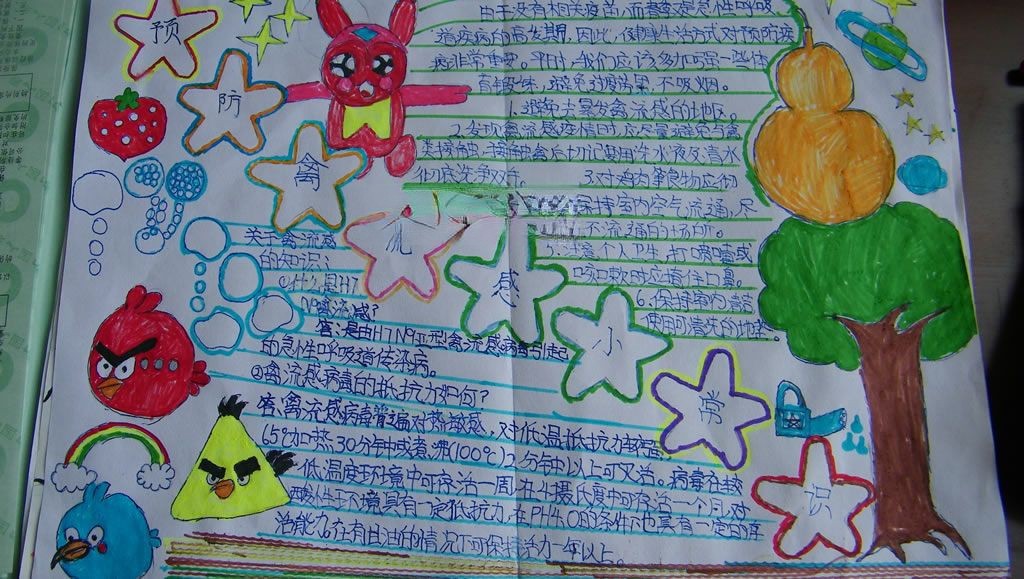 预
防
禽
流
感
小
常
识
由于没有相关疫苗,而春季是急性呼吸
道疾病的高发期,因此,健康生活方式对预防该
病非常重要。平时,我们应该多加强一些体
育锻炼,避免过度劳累,不吸烟。
1.避免去暴发禽流感的地区。
2.发现禽流感疫情时,应尽量避免与禽
类接触,接触禽后切记要用洗水液及清水
彻底洗净双手。 3.对鸡肉等食物应彻
保持室内空气流通,尽
不流通的场所。
个人卫生,打喷嚏或
咳嗽时应掩住口鼻。
6.保持室内清洁,
使用可清洗的地垫。
关于禽流感
的知识:
①什么是H7
N9禽流感?
答:是由H7N9亚型禽流感病毒引起
的急性呼吸道传染病。
②禽流感病毒的抵抗力如何?
答:禽流感病毒普遍对热敏感,对低温抵抗力较强,
65℃加热30分钟或煮沸(100℃)2分钟以上可灭活。病毒在较
低温度环境中可存活一周,在4摄氏度中可存活一个月,对
酸性环境具有一定抵抗力,在PH4.0的条件下也具有一定的存
活能力。在有甘油的情况下可保持活力一年以上。